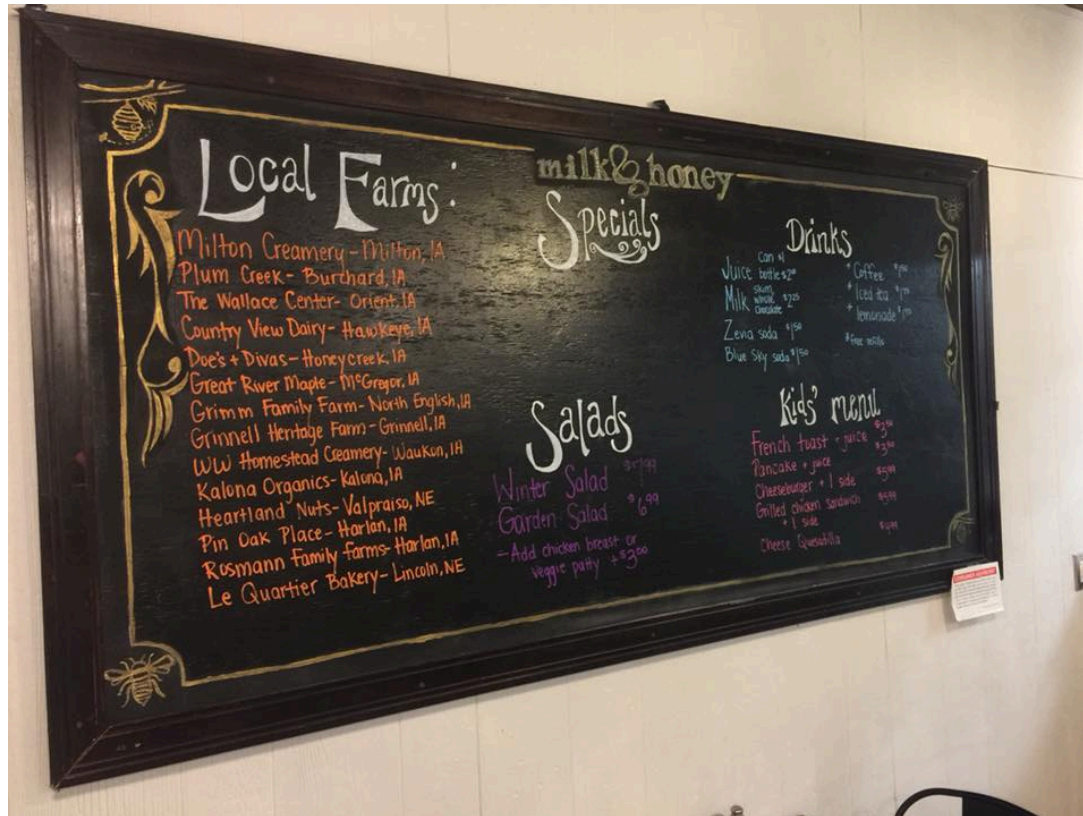 Local Farms:
Milton Creamery - Milton, IA
Plum Creek - Burchard, IA
The Wallace Center - Orient, IA
Country View Dairy - Hawkeye, IA
Doe's + Divas - Honeycreek, IA
Great River Maple - McGregor, IA
Grimm Family Farm - North English, IA
Grinnell Heritage Farm - Grinnell, IA
WW Homestead Creamery - Waukon, IA
Kalona Organics - Kalona, IA
Heartland Nuts - Valpraiso, NE
Pin Oak Place - Harlan, IA
Rosmann Family Farms - Harlan, IA
Le Quartier Bakery - Lincoln, NE
milk & honey
Specials
Salads
Winter Salad
Garden Salad $6.99
- Add chicken breast or
veggie patty + $3.00
Drinks
Juice can $1
bottle $2.00
Milk skim, whole, chocolate $2.25
Zevia soda $1.50
Blue Sky soda $1.50
* Coffee
* Iced tea
* lemonade
* free refills
Kids' menu
French toast + juice
Pancake + juice
Cheeseburger + 1 side $5.99
Grilled chicken sandwich $5.99
+ 1 side
Cheese Quesadilla